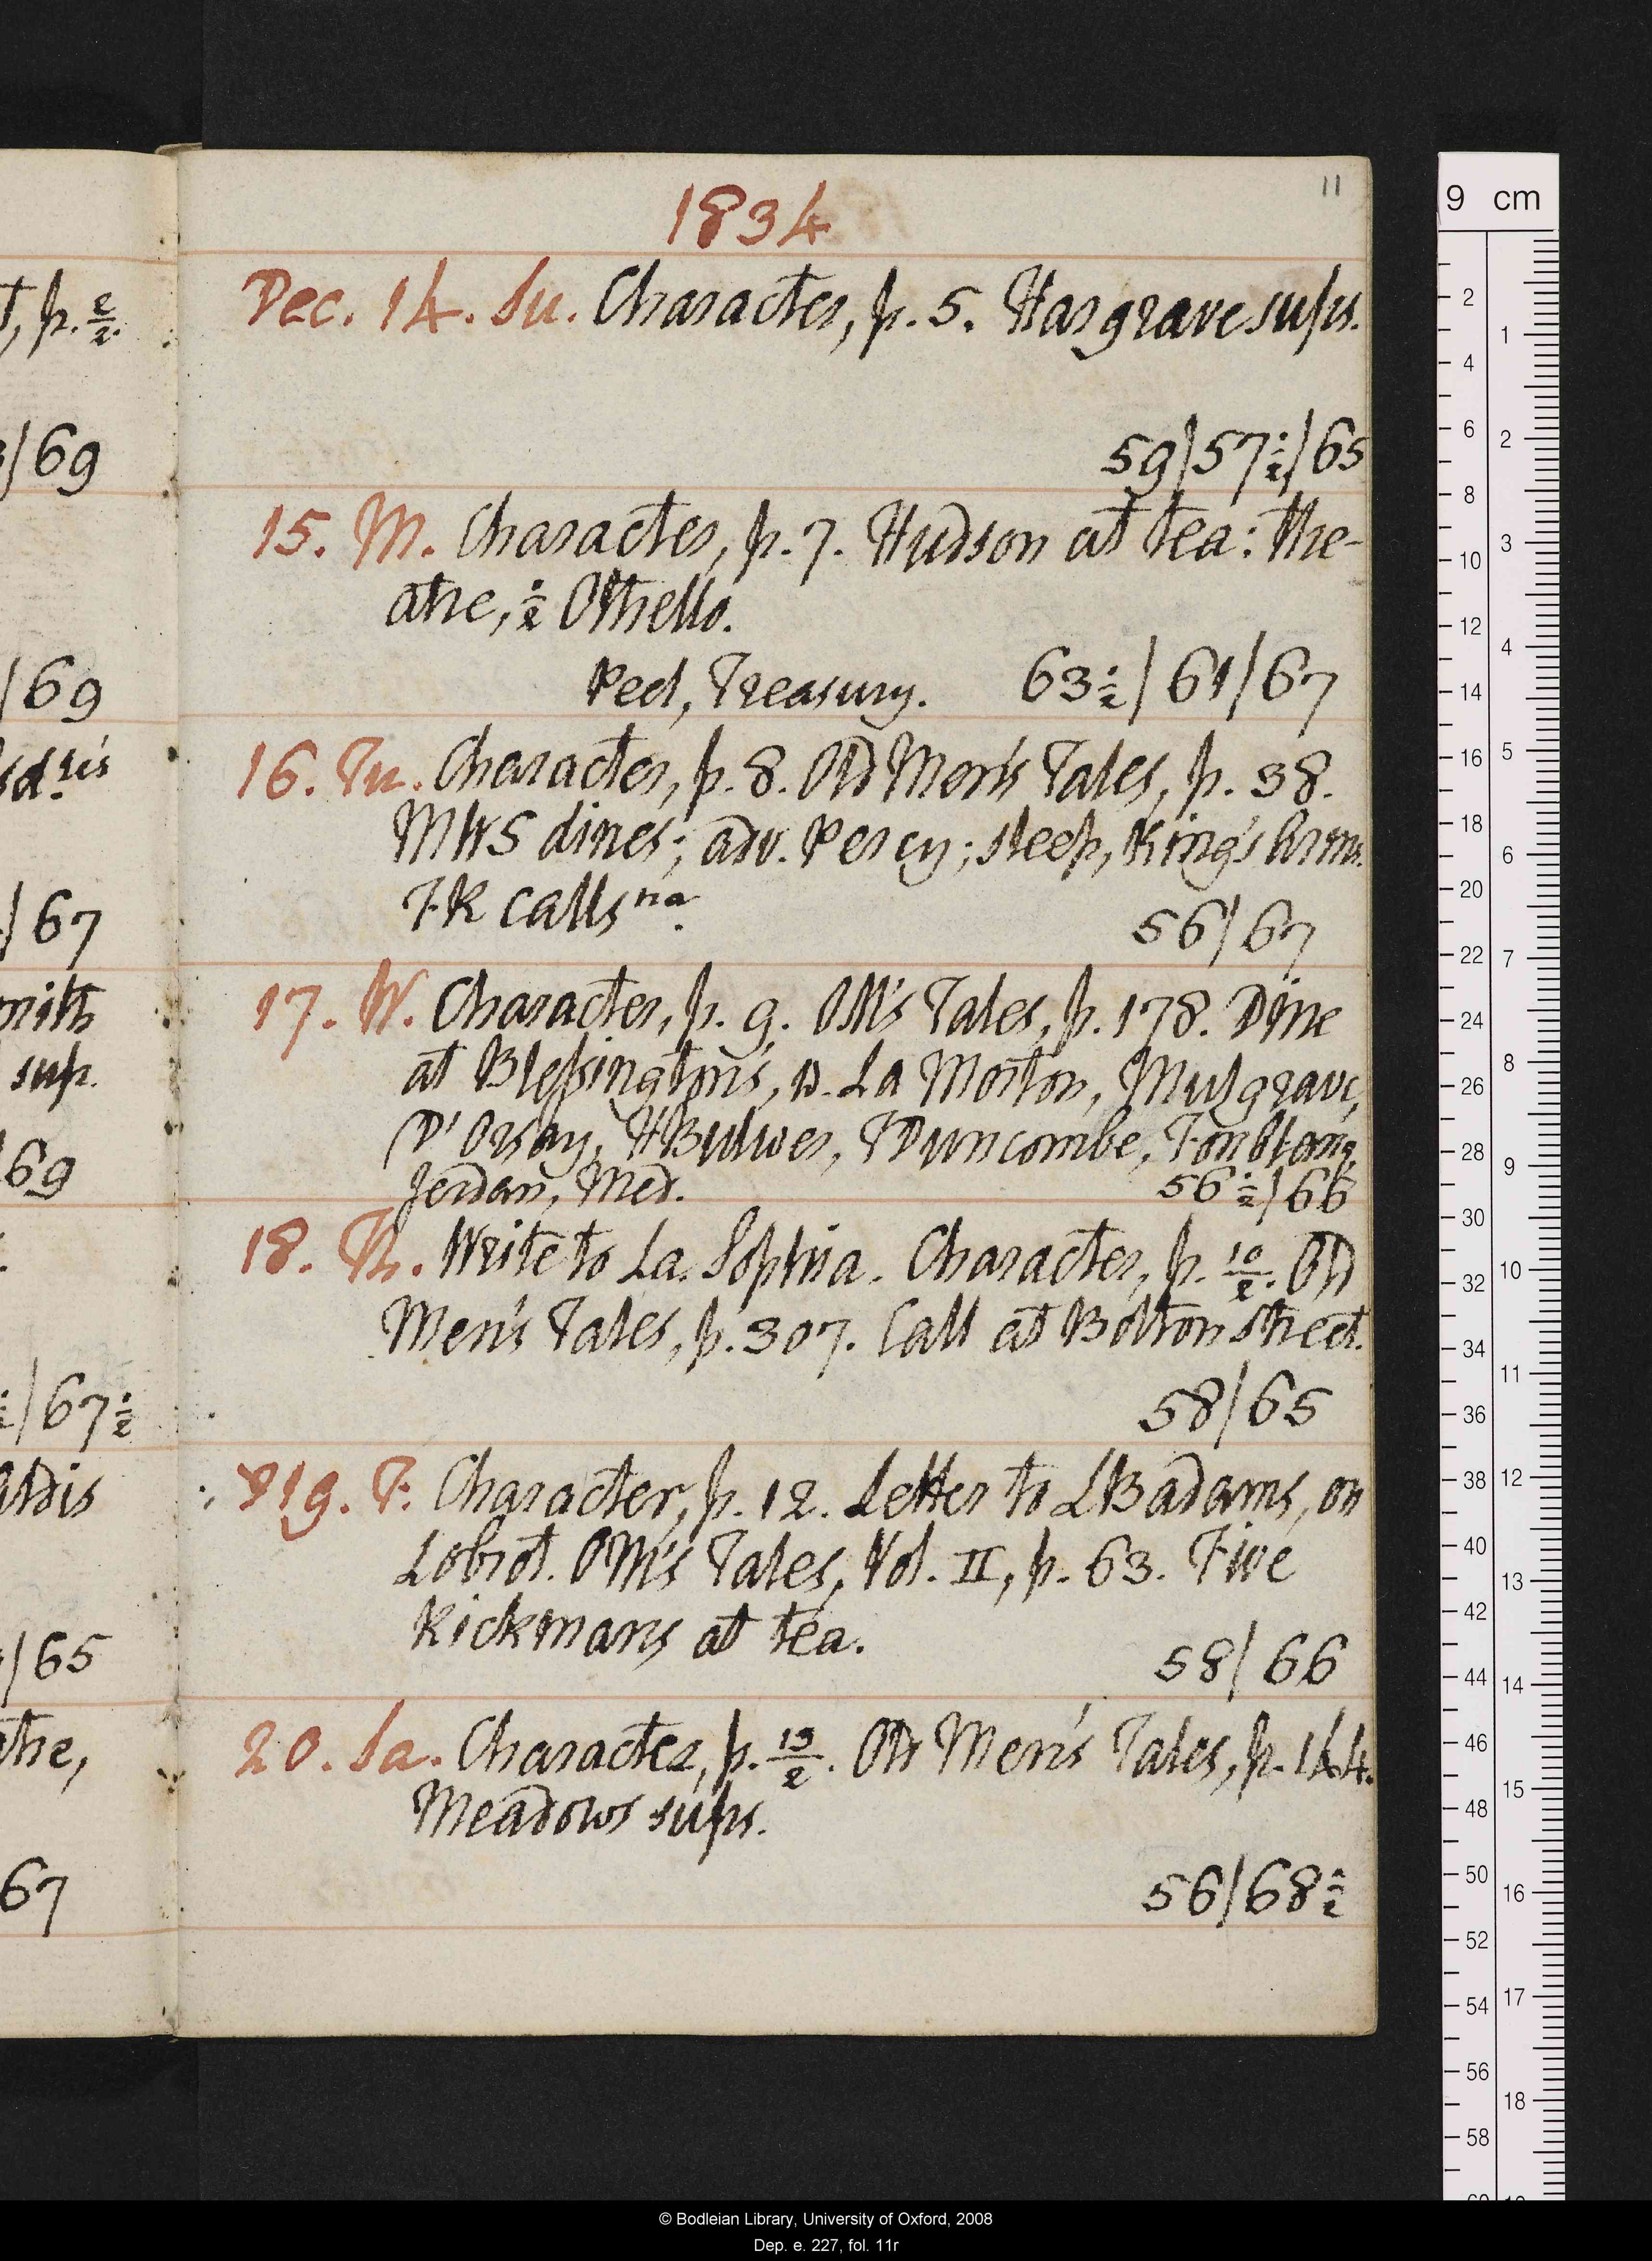 11
1834
Dec. 14. Su. Character, p. 5. Hargrave sups.
59/57½/65
15. M. Character, p. 7. Hudson at tea: the-
atre, ½ Othello.
Peel, Treasury. 63½/61/67
16. Tu. Character, p. 8. Old Men's Tales, p. 38.
MWS dines; adv. Percy; sleep, King's Arms.
FK calls na.
56/67
17. W. Character, p. 9. OM's Tales, p. 178. Dine
at Blessington's, w. La Morton, Mulgrave,
D'Orsay, HBulwer, TDuncombe, Fonblanq,
Jerdan, Med. 56½/66
18. Th. Write to La. Sophia. Character, p. 10/2. Old
Men's Tales, p. 307. Call at Bolton Street.
58/65
19. F. Character, p. 12. Letter to LBadams, on
Lobrot. OM's Tales, Vol. II, p. 63. Five
Rickmans at tea.
58/66
20. Sa. Character, p. 13/2. Old Men's Tales, p. 144.
Meadows sups.
56/68½
t, p. 2/2.
/69
/69
/67
sup.
69
/67½
/65
67
9 cm
© Bodleian Library, University of Oxford, 2008
Dep. e. 227, fol. 11r